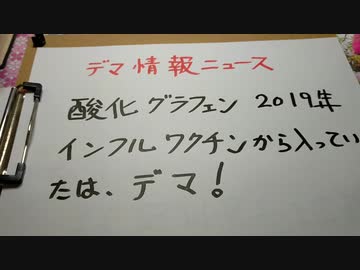 デマ情報ニュース
酸化グラフェン 2019年
インフルワクチンから入ってい
たは、デマ!